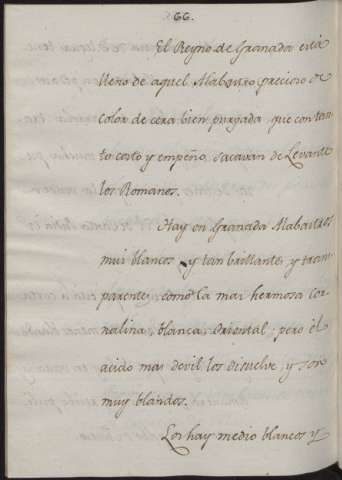 66.
El Reyno de Granada está
lleno de aquel Alabastro precioso de
color de cera bien purgada, que con tan-
to costo y empeño, sacavan de Levante
los Romanos.
Hay en Granada Alabastros
mui blancos y tan brillante, y trans-
parente, como la mas hermosa Cor-
nalina, blanca, Oriental; pero el
acido mas devil los disuelve, y son
muy blandos.
Los hay medio blancos y